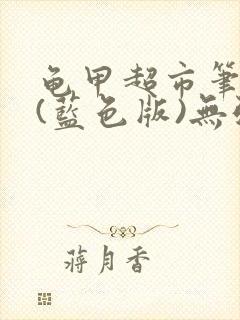 龟甲超市筆
(藍色版)無
蔣月香